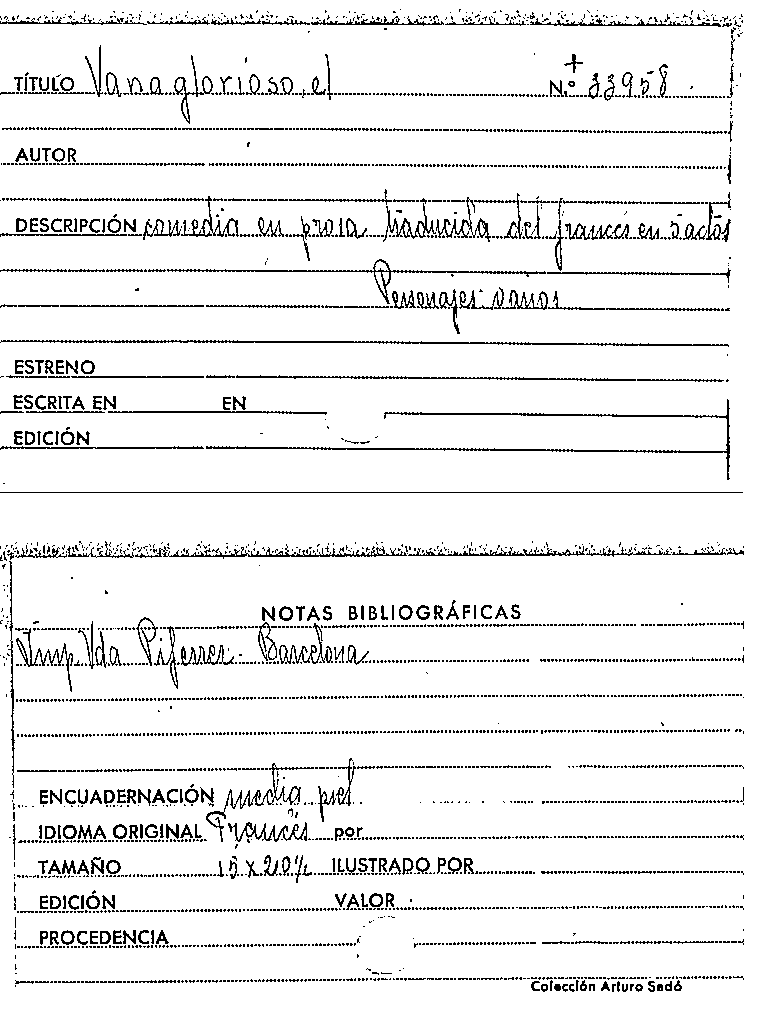 TÍTULO Vanaglorioso, el N.º + 33958
AUTOR
DESCRIPCIÓN comedia en prosa traducida del francés en 5 actos
Personajes: varios
ESTRENO
ESCRITA EN EN
EDICIÓN
NOTAS BIBLIOGRÁFICAS
Imp. Vda Piferrer - Barcelona
ENCUADERNACIÓN media piel
IDIOMA ORIGINAL Francés por
TAMAÑO 15 x 20 ILUSTRADO POR
EDICIÓN VALOR
PROCEDENCIA
Colección Arturo Sedó